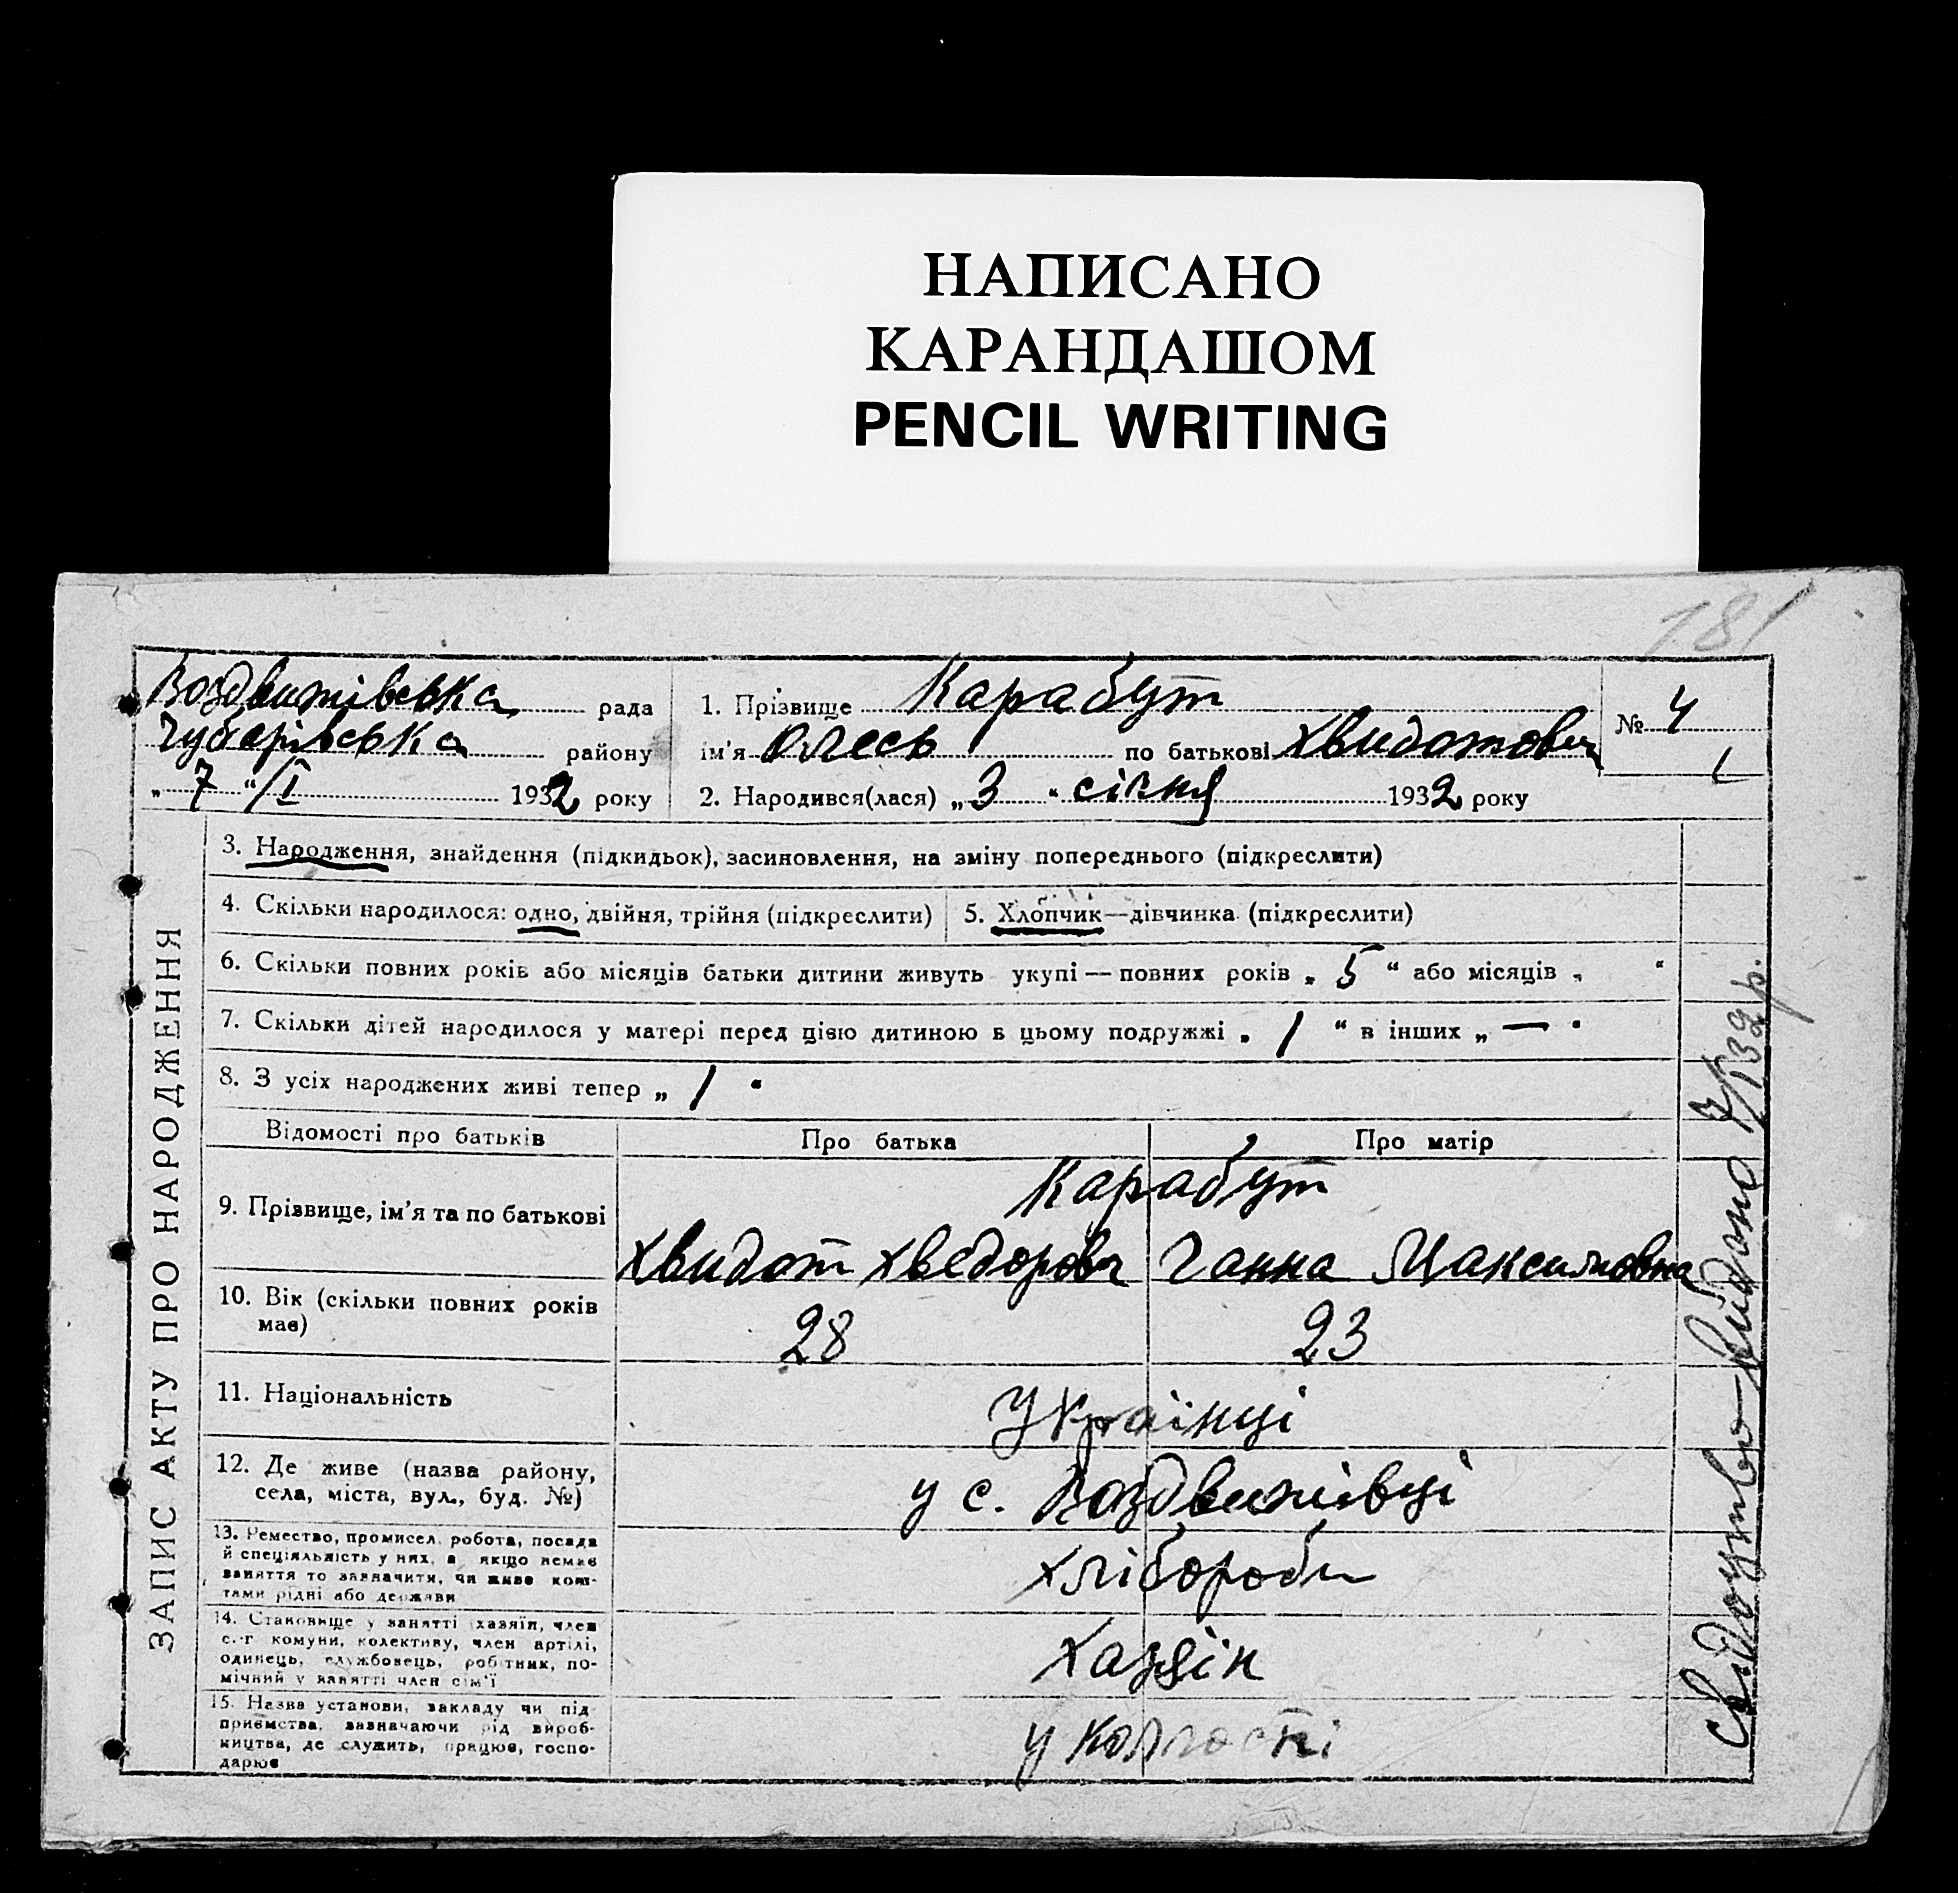 НАПИСАНО
КАРАНДАШОМ
PENCIL WRITING
181
Воздвижівська рада
Чубарівська району
„ 7 “/I 1932 року
1. Прізвище Карабут
ім'я Олесь по батькові Хвидотович
2. Народився(лася) „ 3 “ січня 1932 року
№ 4
ЗАПИС АКТУ ПРО НАРОДЖЕННЯ
3. Народження, знайдення (підкидьок), засиновлення, на зміну попереднього (підкреслити)
4. Скільки народилося: одно, двійня, трійня (підкреслити)
5. Хлопчик—дівчинка (підкреслити)
6. Скільки повних років або місяців батьки дитини живуть укупі — повних років „ 5 “ або місяців „ “
7. Скільки дітей народилося у матері перед цією дитиною в цьому подружжі „ 1 “ в інших „ — “
8. З усіх народжених живі тепер „ 1 “
Відомості про батьків Про батька Про матір
9. Прізвище, ім'я та по батькові
Карабут
Хвидот Хведорович Ганна Максимовна
10. Вік (скільки повних років
має)
28 23
11. Національність
Українці
12. Де живе (назва району,
села, міста, вул., буд. №)
у с. Воздвижівці
13. Ремество, промисел, робота, посада
й спеціяльність у них, а якщо немає
заняття то зазначити, чи живе кош-
тами рідні або держави
хлібороби
14. Становище у занятті (хазяїн, член
с.-г комуни, колективу, член артілі,
одинець, службовець, робітник, по-
мічний у занятті член сім'ї
хазяїн
15. Назва установи, закладу чи під
приємства, зазначаючи рід вироб-
ництва, де служить, працює, госпо-
дарює
у колгоспі
Свідоцтво видано 7/I 32 р.